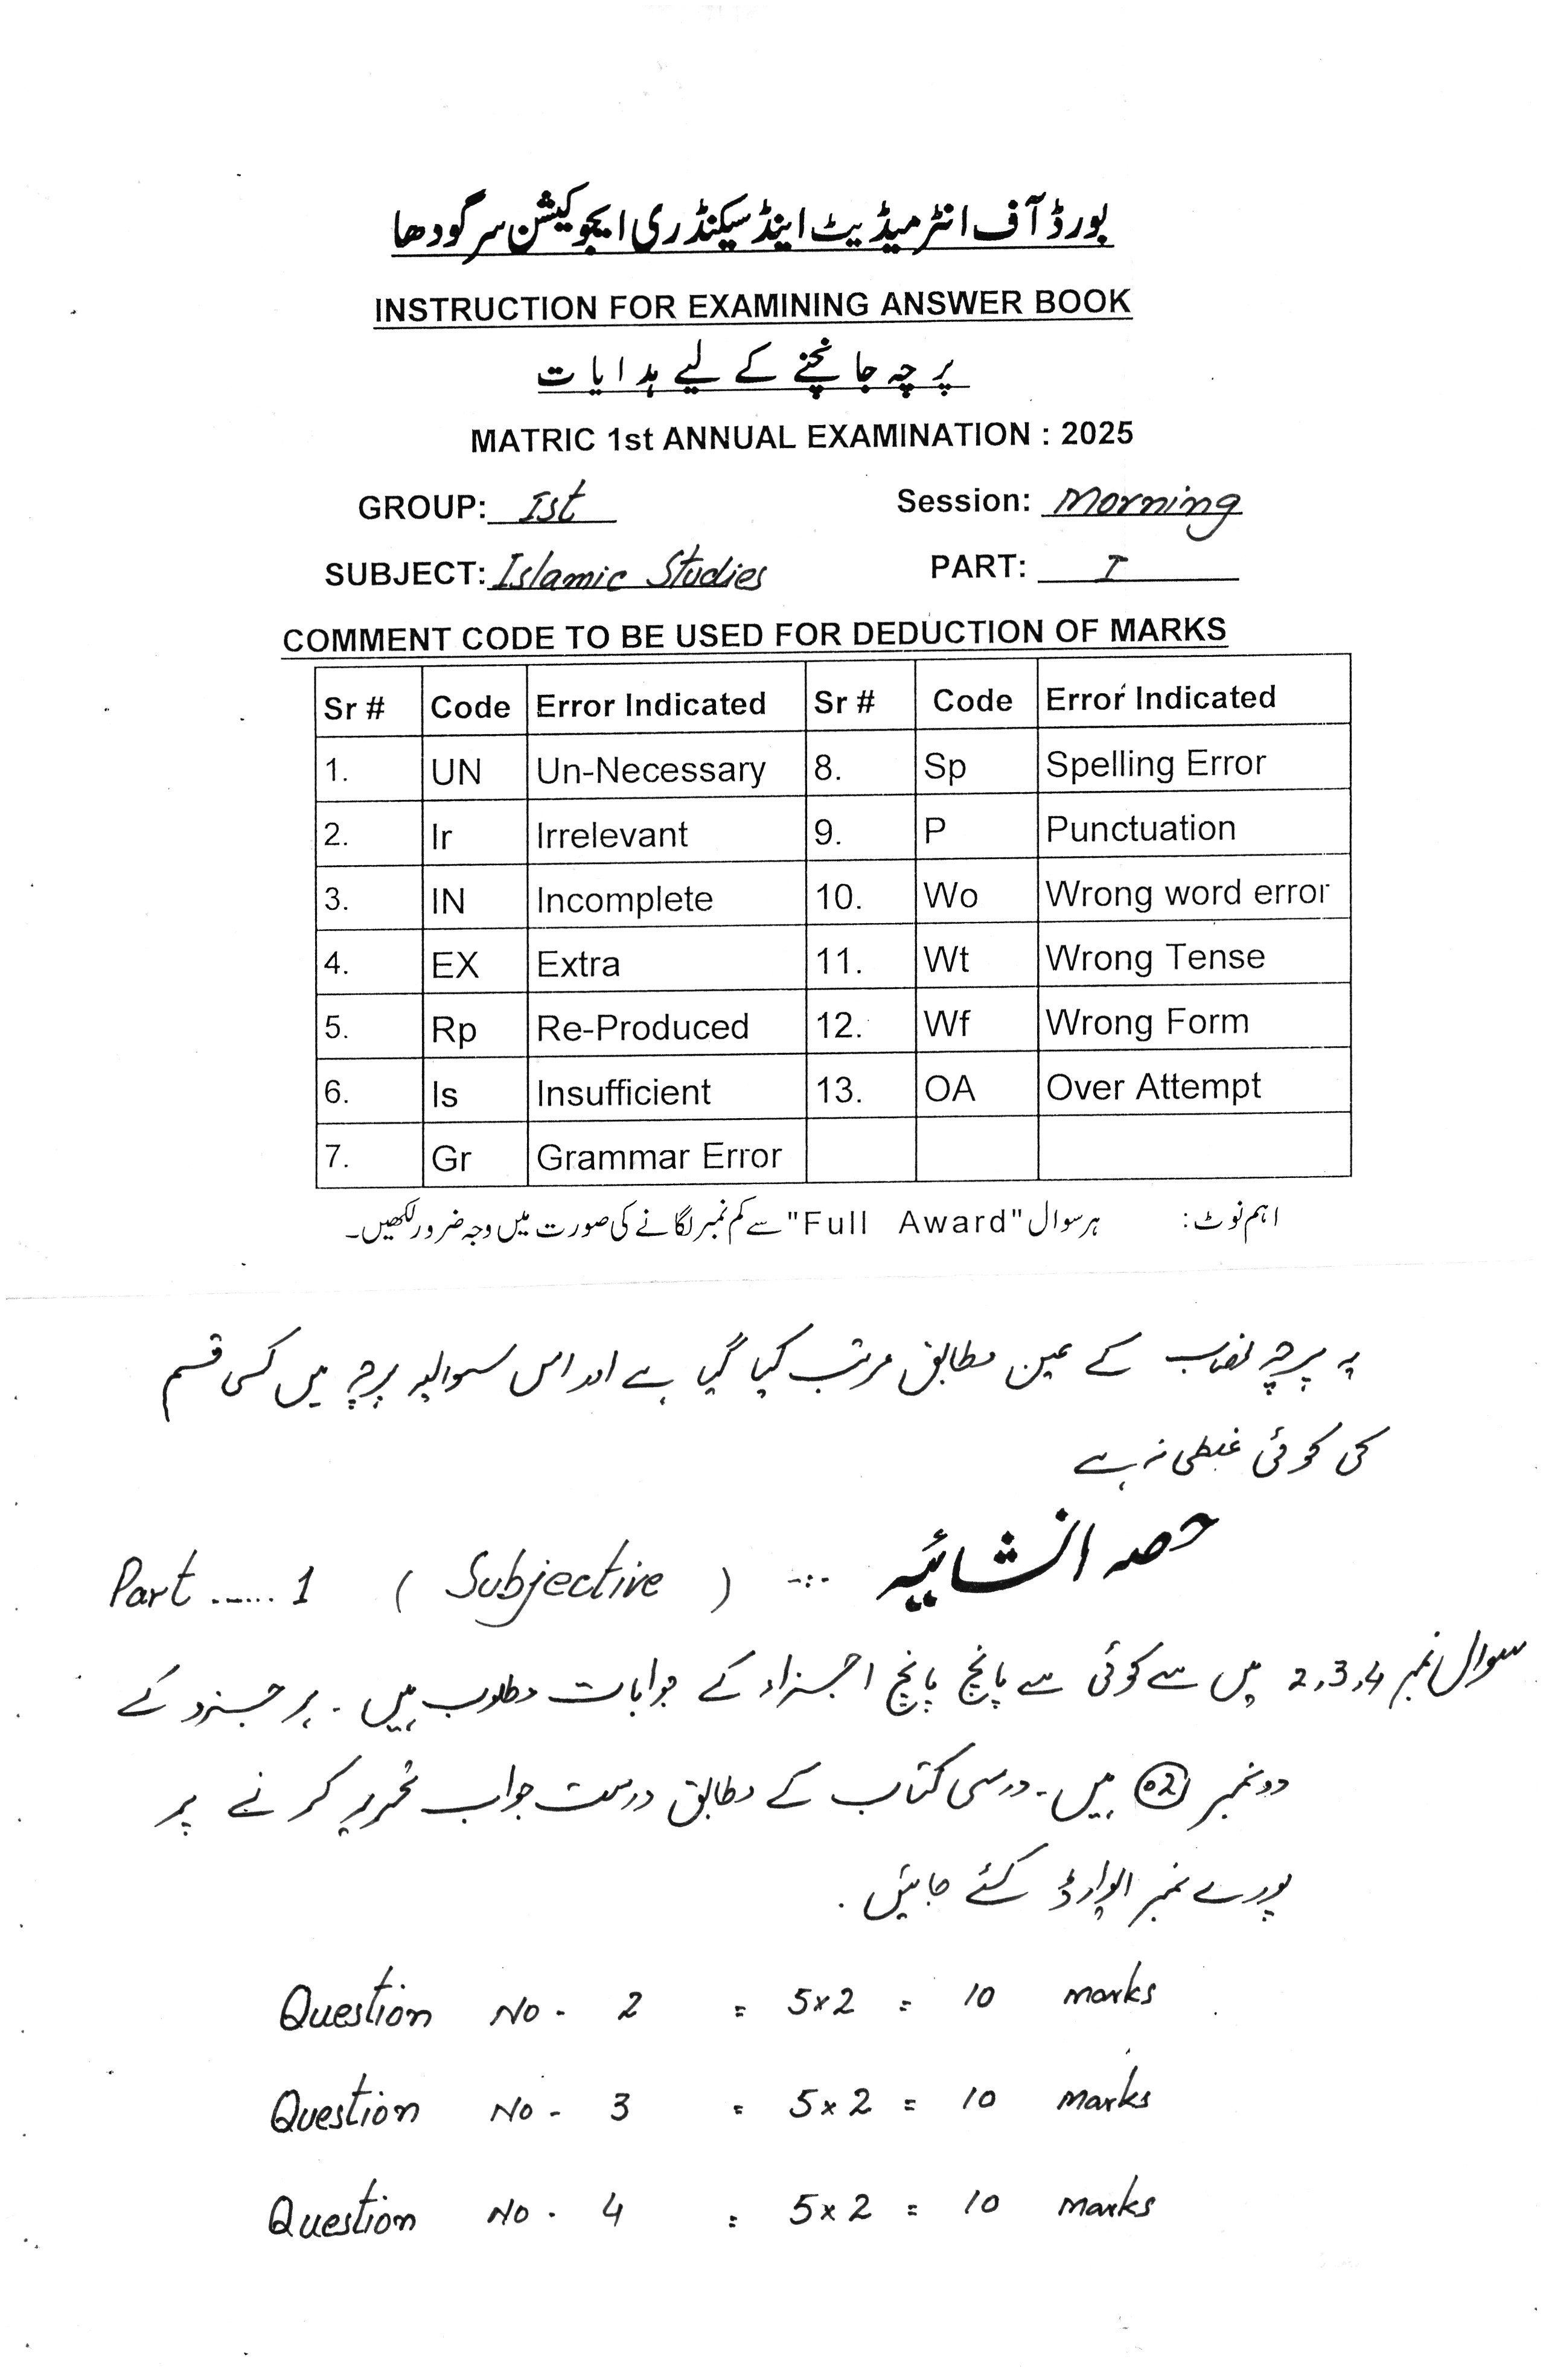 بورڈ آف انٹرمیڈیٹ اینڈ سیکنڈری ایجوکیشن سرگودھا
INSTRUCTION FOR EXAMINING ANSWER BOOK
پرچہ جانچنے کے لیے ہدایات
MATRIC 1st ANNUAL EXAMINATION : 2025
GROUP: Ist Session: Morning
SUBJECT: Islamic Studies PART: I
COMMENT CODE TO BE USED FOR DEDUCTION OF MARKS
Sr # Code Error Indicated Sr # Code Error Indicated
1. UN Un-Necessary 8. Sp Spelling Error
2. Ir Irrelevant 9. P Punctuation
3. IN Incomplete 10. Wo Wrong word error
4. EX Extra 11. Wt Wrong Tense
5. Rp Re-Produced 12. Wf Wrong Form
6. Is Insufficient 13. OA Over Attempt
7. Gr Grammar Error
اہم نوٹ: ہر سوال "Full Award" سے کم نمبر لگانے کی صورت میں وجہ ضرور لکھیں۔
یہ پرچہ نصاب کے عین مطابق مرتب کیا گیا ہے اور اس سوالیہ پرچہ میں کسی قسم
کی کوئی غلطی نہ ہے
حصہ انشائیہ -:- Part ...... 1 ( Subjective )
سوال نمبر 2,3,4 میں سے کوئی سے پانچ پانچ اجزاء کے جوابات مطلوب ہیں۔ ہر جزو کے
دو نمبر 02 ہیں۔ درسی کتاب کے مطابق درست جواب تحریر کرنے پر
پورے نمبر ایوارڈ کئے جائیں۔
Question No - 2 = 5x2 = 10 marks
Question No - 3 = 5x2 = 10 marks
Question No - 4 = 5x2 = 10 marks